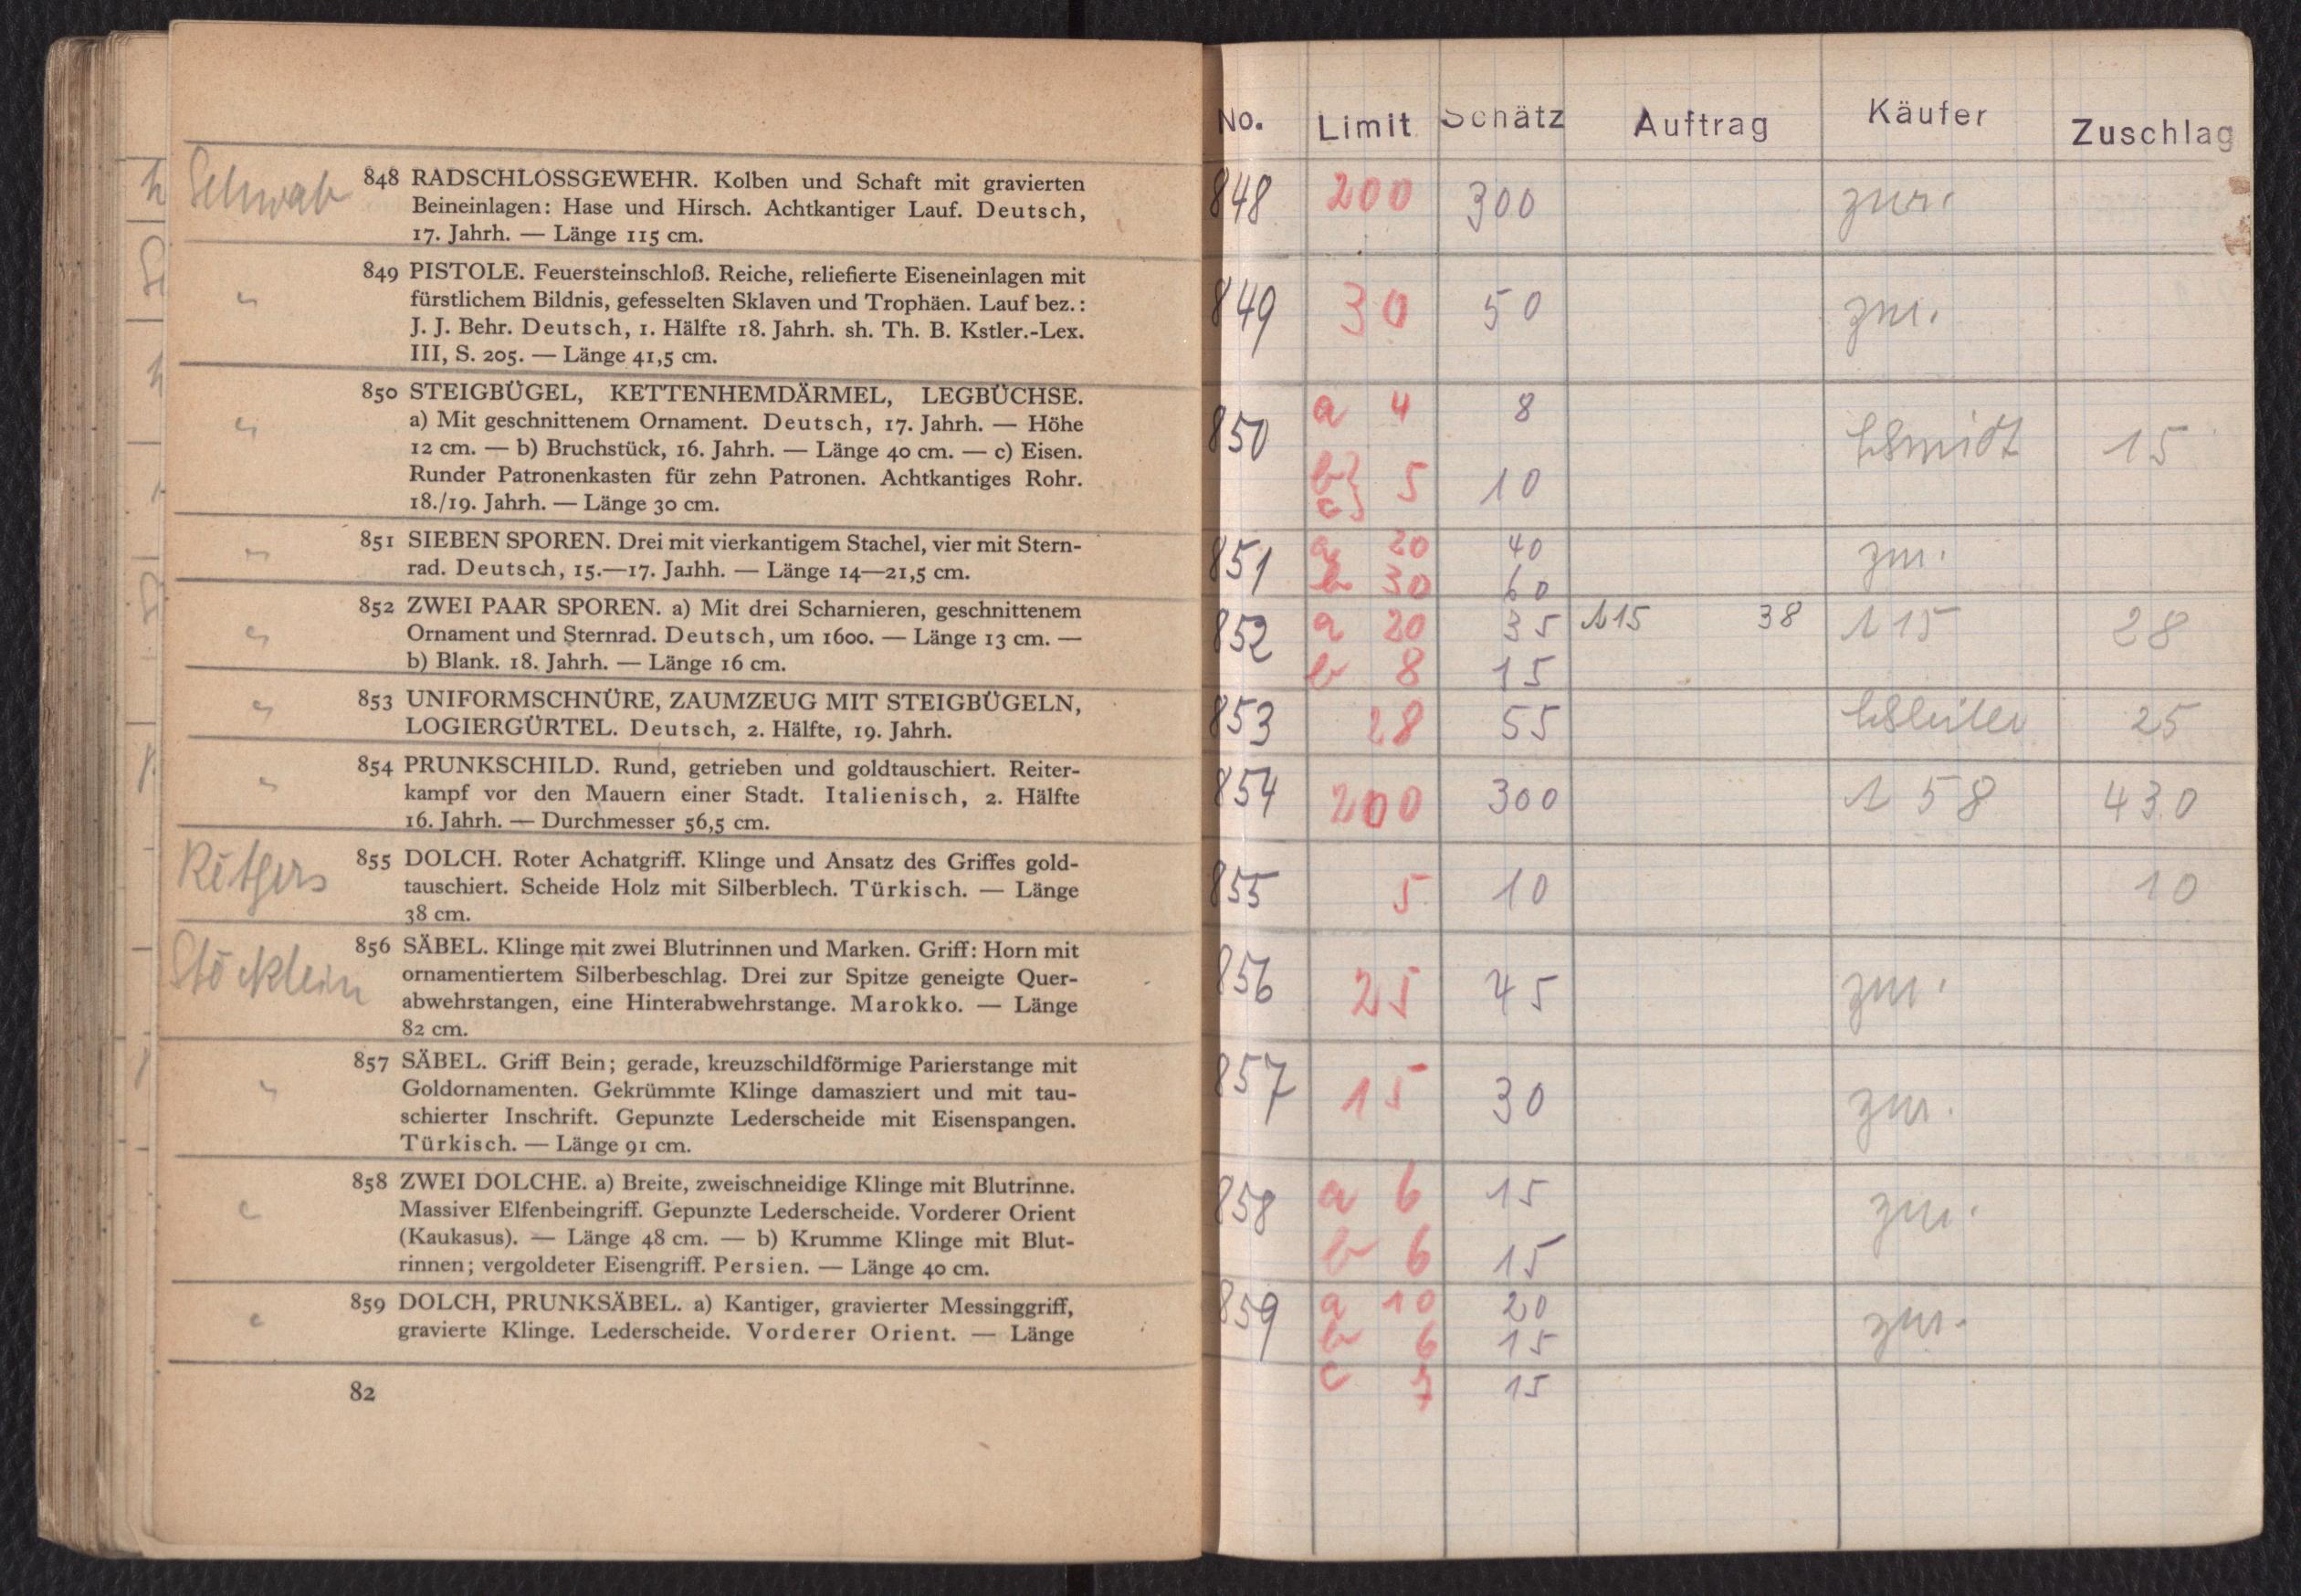 Schwab
848 RADSCHLOSSGEWEHR. Kolben und Schaft mit gravierten
Beineinlagen: Hase und Hirsch. Achtkantiger Lauf. Deutsch,
17. Jahrh. — Länge 115 cm.
849 PISTOLE. Feuersteinschloß. Reiche, reliefierte Eiseneinlagen mit
fürstlichem Bildnis, gefesselten Sklaven und Trophäen. Lauf bez.:
J. J. Behr. Deutsch, 1. Hälfte 18. Jahrh. sh. Th. B. Kstler.-Lex.
III, S. 205. — Länge 41,5 cm.
850 STEIGBÜGEL, KETTENHEMDÄRMEL, LEGBÜCHSE.
a) Mit geschnittenem Ornament. Deutsch, 17. Jahrh. — Höhe
12 cm. — b) Bruchstück, 16. Jahrh. — Länge 40 cm. — c) Eisen.
Runder Patronenkasten für zehn Patronen. Achtkantiges Rohr.
18./19. Jahrh. — Länge 30 cm.
851 SIEBEN SPOREN. Drei mit vierkantigem Stachel, vier mit Stern-
rad. Deutsch, 15.—17. Jaıhh. — Länge 14—21,5 cm.
852 ZWEI PAAR SPOREN. a) Mit drei Scharnieren, geschnittenem
Ornament und Sternrad. Deutsch, um 1600. — Länge 13 cm. —
b) Blank. 18. Jahrh. — Länge 16 cm.
853 UNIFORMSCHNÜRE, ZAUMZEUG MIT STEIGBÜGELN,
LOGIERGÜRTEL. Deutsch, 2. Hälfte, 19. Jahrh.
854 PRUNKSCHILD. Rund, getrieben und goldtauschiert. Reiter-
kampf vor den Mauern einer Stadt. Italienisch, 2. Hälfte
16. Jahrh. — Durchmesser 56,5 cm.
855 DOLCH. Roter Achatgriff. Klinge und Ansatz des Griffes gold-
tauschiert. Scheide Holz mit Silberblech. Türkisch. — Länge
38 cm.
Stöcklein
856 SÄBEL. Klinge mit zwei Blutrinnen und Marken. Griff: Horn mit
ornamentiertem Silberbeschlag. Drei zur Spitze geneigte Quer-
abwehrstangen, eine Hinterabwehrstange. Marokko. — Länge
82 cm.
857 SÄBEL. Griff Bein; gerade, kreuzschildförmige Parierstange mit
Goldornamenten. Gekrümmte Klinge damasziert und mit tau-
schierter Inschrift. Gepunzte Lederscheide mit Eisenspangen.
Türkisch. — Länge 91 cm.
858 ZWEI DOLCHE. a) Breite, zweischneidige Klinge mit Blutrinne.
Massiver Elfenbeingriff. Gepunzte Lederscheide. Vorderer Orient
(Kaukasus). — Länge 48 cm. — b) Krumme Klinge mit Blut-
rinnen; vergoldeter Eisengriff. Persien. — Länge 40 cm.
859 DOLCH, PRUNKSÄBEL. a) Kantiger, gravierter Messinggriff,
gravierte Klinge. Lederscheide. Vorderer Orient. — Länge
82
No. Limit Schätz Auftrag Käufer Zuschlag
848 200 300 zur.
849 30 50 zur.
850 a 4 8
15
b} 5 10
c}
851 a 20 40 zur.
b 30 60
852 a 20 35 15 38 15 28
b 8 15
853 28 55 25
854 200 300 58 430
855 5 10 10
856 25 45 zur.
857 15 30 zur.
858 a 6 15 zur.
b 6 15
859 a 10 20 zur.
b 6 15
c 15